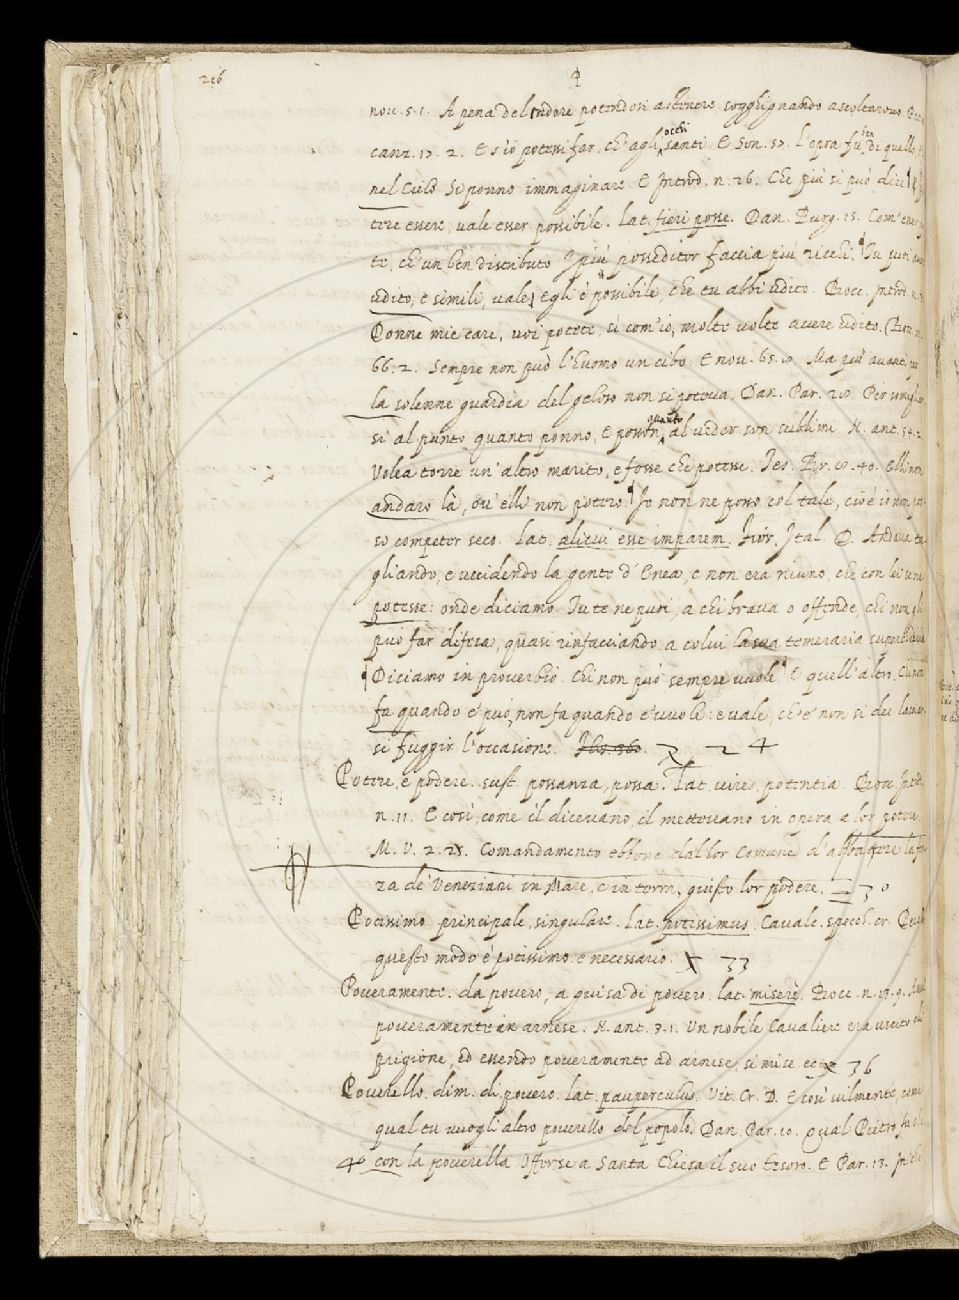 216
P
nov. 51. A pena del ridere potendosi astenere sogghignando ascoltarono.
canz. 17. 2. E s'io potessi far, ch'agli occhi santi. E Son. 57. L'opra fu ben di quelle,
nel Cielo Si ponno immaginare. E Introd. n. 26. Che più si può dire
tere essere, vale esser possibile. lat. fieri posse. Dan. Purg. 15. Com'esser
te, ch'un ben distributo I più posseditor faccia più ricchi. Tu puoi aver
udito, e simili, vale, Egli è possibile, che tu abbi udito. Bocc. Introd. n.
Donne mie care, voi potete, sì com'io, molte volte avere udito. (Bocc. n.
66. 2. Sempre non può l'huomo un cibo. E nov. 65. Ma più avanti
la solenne guardia del geloso non si poteva. Dan. Par. 28. Per somigliar
si al punto quanto ponno, e posson, quanto al veder son sublimi. N. ant. 54. 2.
Volea torre un'altro marito, e fosse che potesse. Tes. Br. 40. Elli non
andaro là, ov'elli non potero. Io non ne posso col tale, cioè io non pos-
so competer seco. Lat. alicui esse imparem. Fior. Ital. D. Andava ta-
gliando, e uccidendo la gente d'Enea, e non era niuno, che con lei
potesse: onde diciamo. Tu te ne puoi, a chi brava o offende, chi non gli
può far difesa, quasi rinfacciando a colui la sua temeraria
Diciamo in proverbio. Chi non può sempre vuole. E quell'altro. Chi non
fa quando e' può, non fa quando e' vuole: e vale, ch'e' non si dee lasciar-
si fuggir l'occasione. 24
Potere, e podere. sust. possanza, possa. Lat. vires, potentia. Bocc. Introd.
n. 11. E così, come il dicevano, il mettevano in opera a lor potere
M. V. 2. 25. Comandamento ebbono dal lor Comune d'abbattere la for-
za de' Veneziani in Mare, e in terra, giusto lor podere. 30
Potissimo. principale, singulare. lat. potissimus. Cavalc. specch. cr.
questo modo è potissimo e necessario. 33
Poveramente. da povero, a guisa di povero. lat. miserè. Bocc. n. 17. 9.
poveramente in arnese. N. ant. 3. 1. Un nobile Cavaliere era uscito di
prigione, ed essendo poveramente ad arnese, si mise, ec. 36
Poverello. dim. di povero. lat. pauperculus. Vit. Cr. D. E così vilmente, come
qual tu vuogli altro poverello del popolo. Dan. Par. 10. Qual Pietro fu che
40 con la poverella Offerse a Santa Chiesa il suo tesoro. E Par. 13.